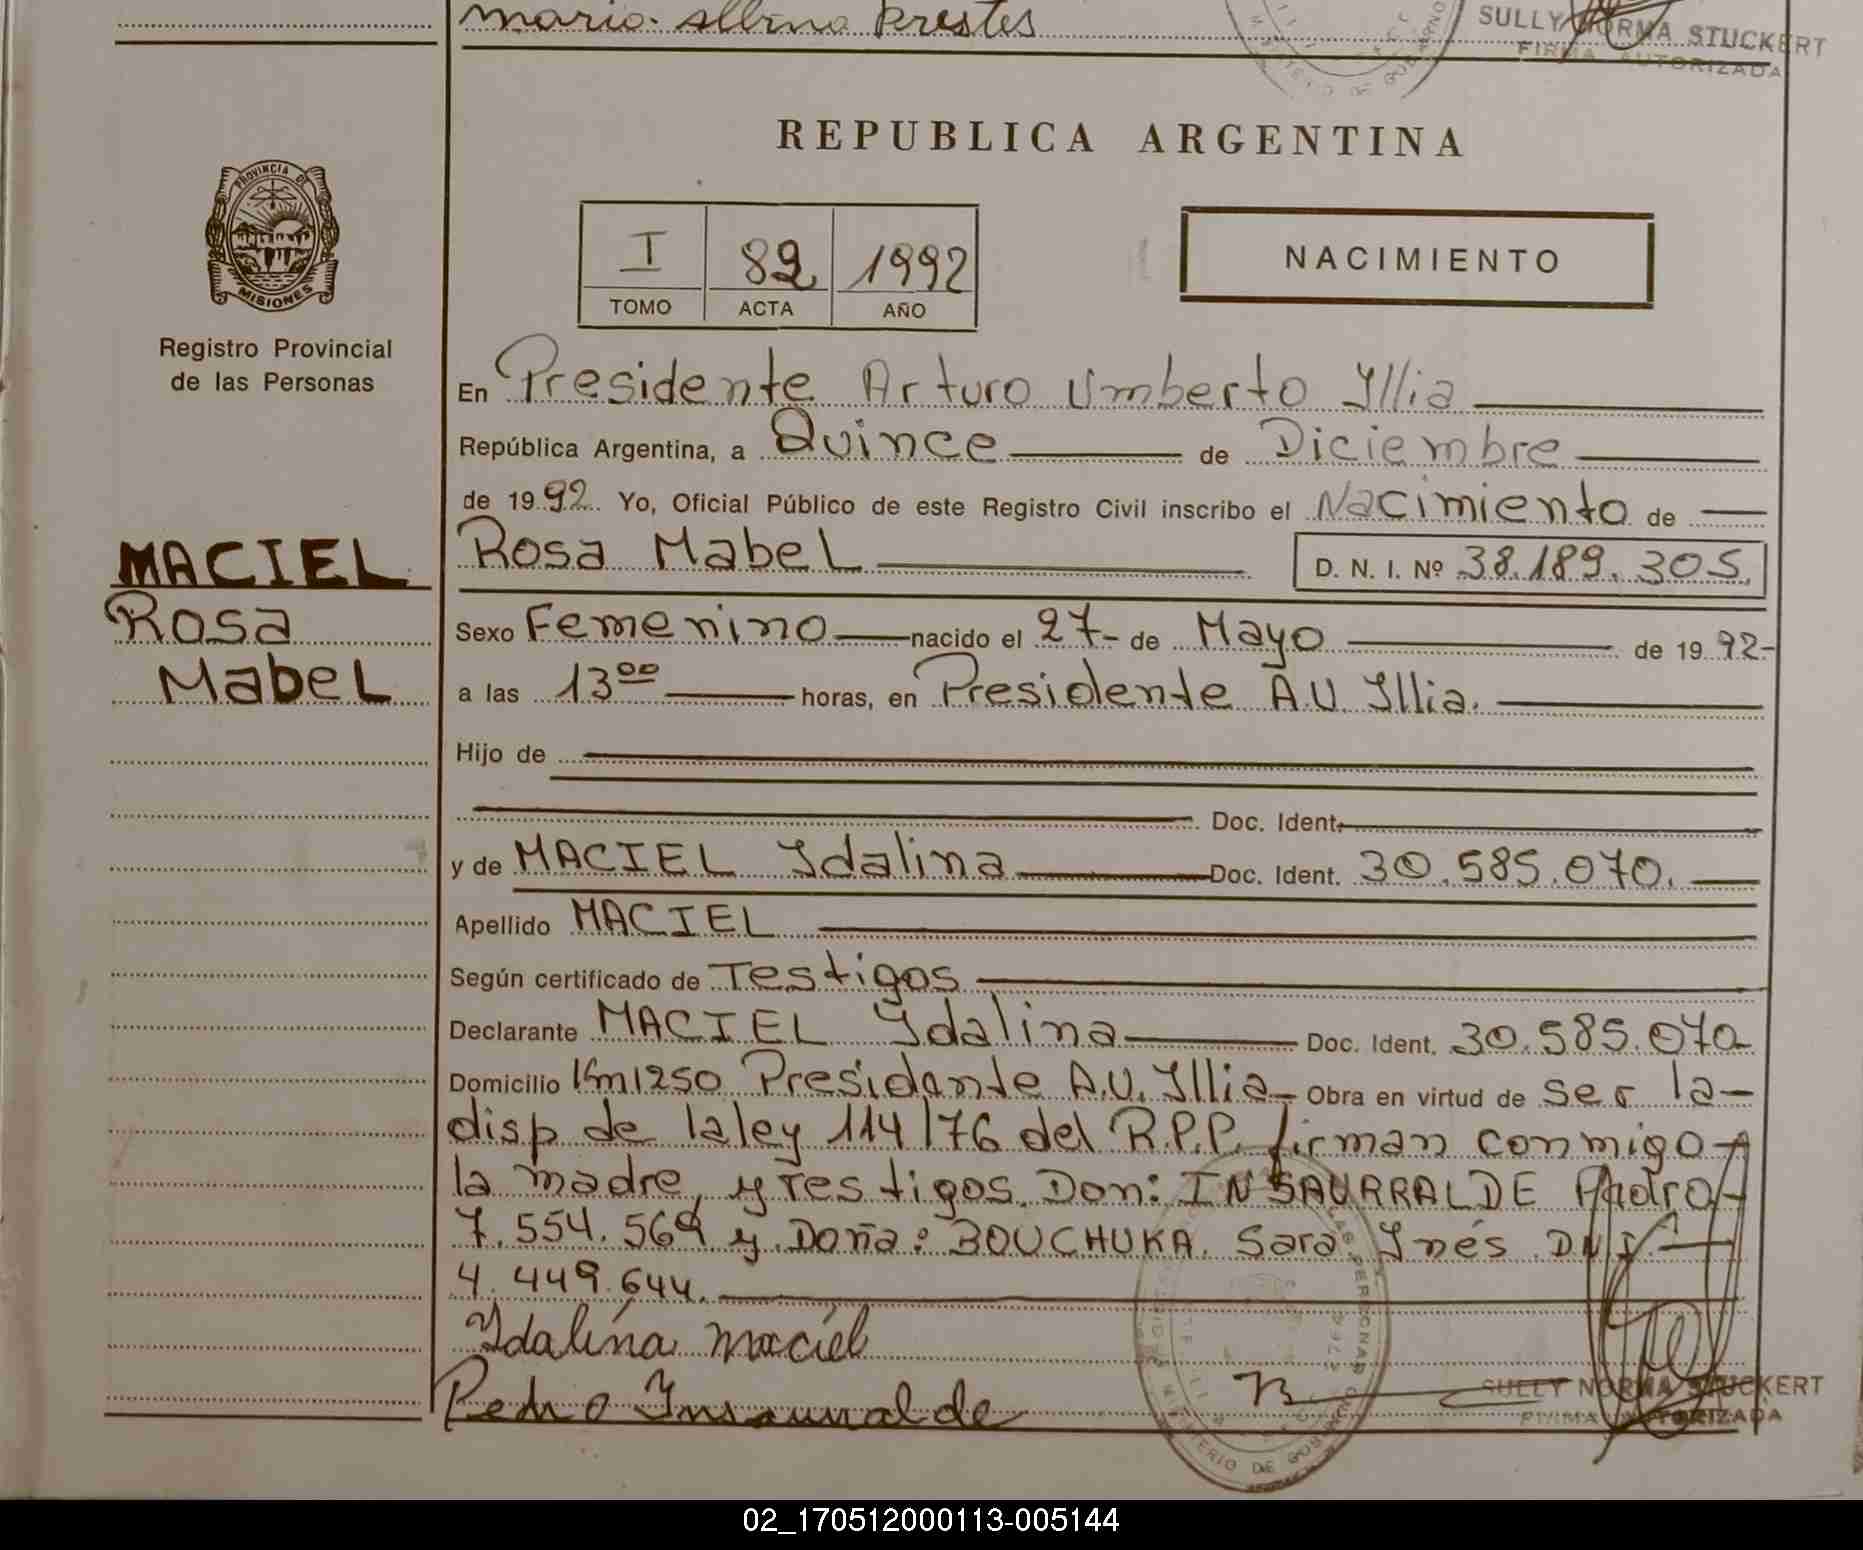 mario Albino Prestes
SULLY NORMA STUCKERT
FIRMA AUTORIZADA
REPUBLICA ARGENTINA
PROVINCIA DE
MISIONES
Registro Provincial
de las Personas
I 82 1992
TOMO ACTA AÑO
NACIMIENTO
En Presidente Arturo Umberto Illia
República Argentina, a Quince de Diciembre
de 1992 Yo, Oficial Público de este Registro Civil inscribo el Nacimiento de
MACIEL
Rosa
Mabel
Rosa Mabel D. N. I. Nº 38.189.305.
Sexo Femenino nacido el 27 de Mayo de 1992
a las 13 00 horas, en Presidente A.U. Illia.
Hijo de
Doc. Ident.
y de MACIEL Idalina Doc. Ident. 30.585.070.
Apellido MACIEL
Según certificado de Testigos
Declarante MACIEL Idalina Doc. Ident. 30.585.070
Domicilio Km1250 Presidante A.U. Illia Obra en virtud de ser la
disp de la ley 114/76 del R.P.P. firman conmigo
la madre, y Testigos Don: INSAURRALDE Pedro
7.554.569 y Doña: BOUCHUKA Sara Inés DNI
4.449.644.
Idalina maciel
Pedro Insaurralde
SULLY NORMA STUCKERT
FIRMA AUTORIZADA
MINISTERIO DE GOBIERNO
02_170512000113-005144